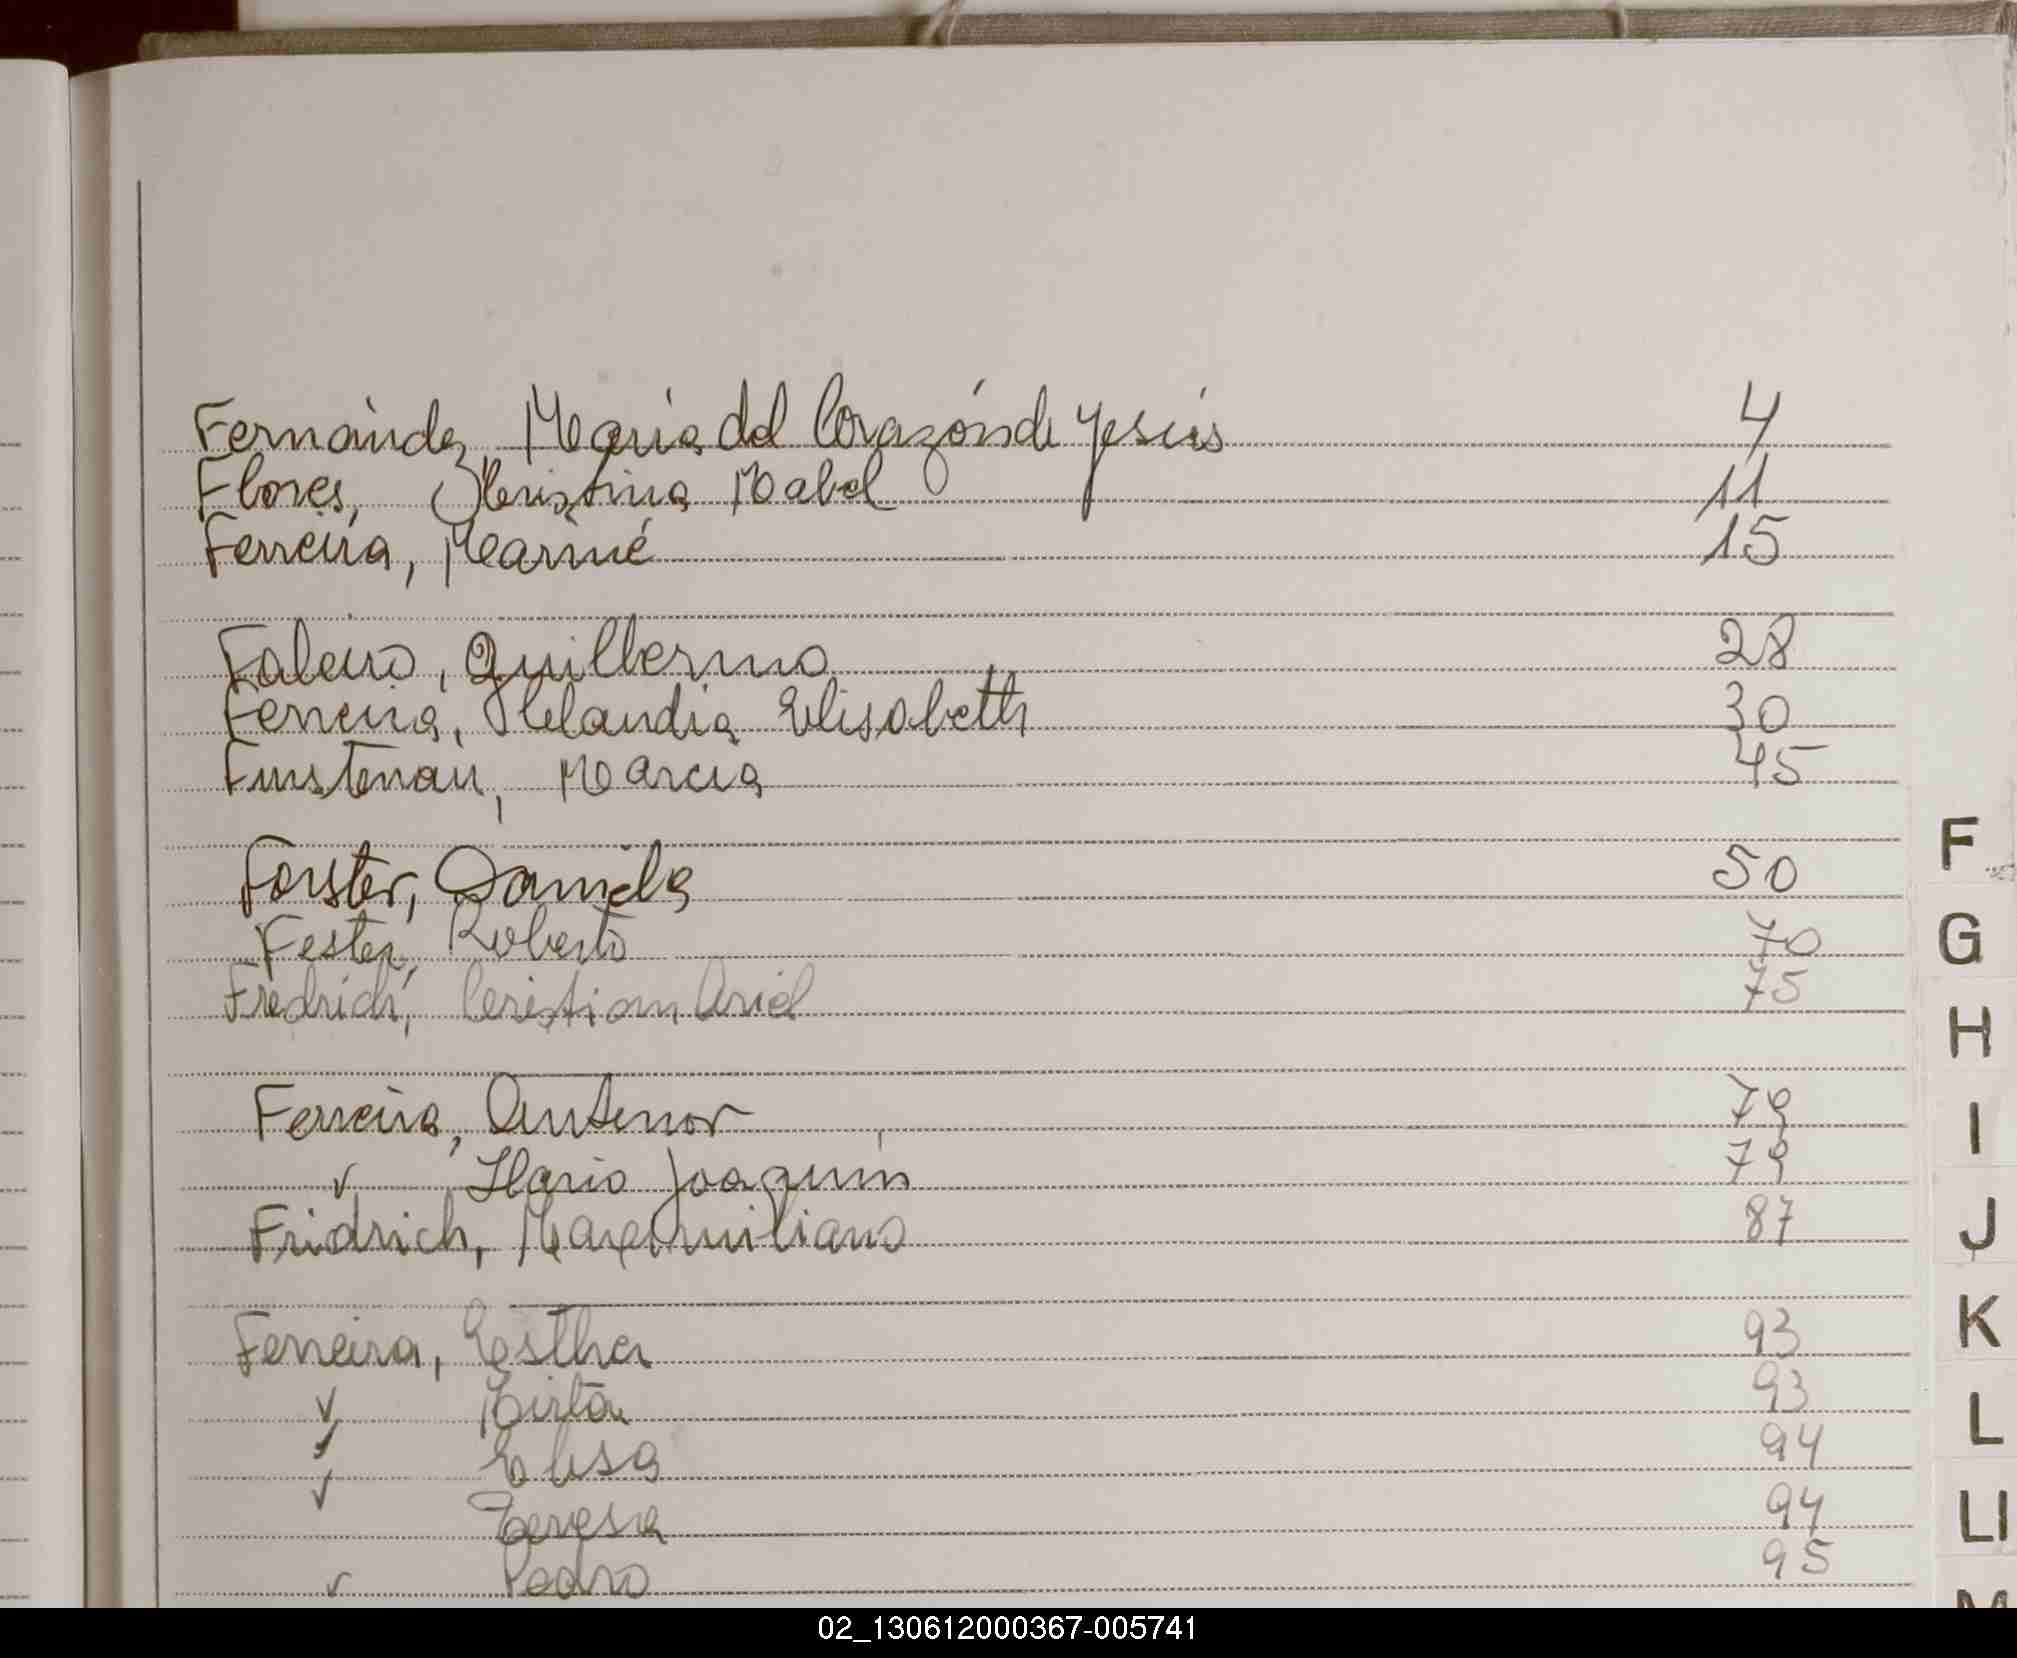 Fernández María del Corazón de Jesús 4
Flores, Cristina Mabel 11
Ferreira, Marné 15
Faleiro, Guilhermo 28
Ferreira, Claudia Elisabeth 30
Furstenau, Marcia 45
Forster, Daniela 50
Fester, Roberto 70
Fredrich, Cristian Ariel 75
Ferreira, Antenor 79
✓ Ilario Joaquin 79
Fridrich, Maximiliano 87
Ferreira, Esther 93
✓ Mirta 93
✓ Elisa 94
✓ Teresa 94
✓ Pedro 95
F
G
H
I
J
K
L
Ll
M
02_130612000367-005741